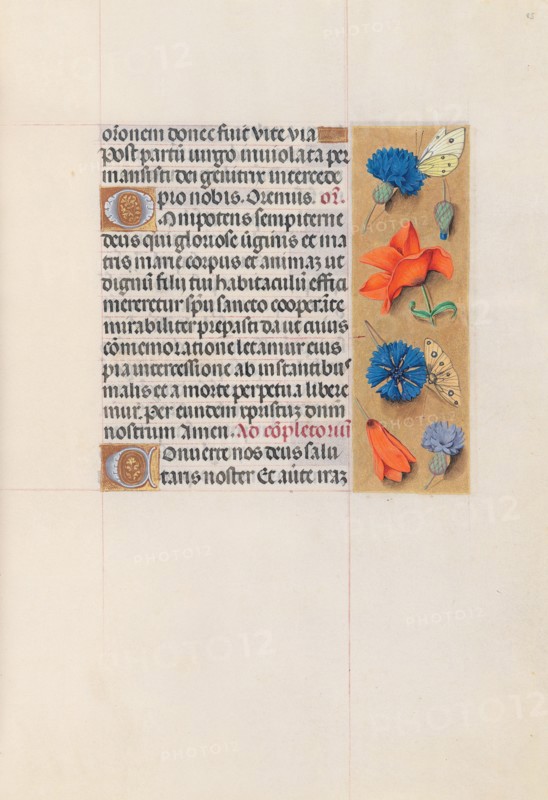 orōnem donec fuit vite via
Post partū virgo inviolata per
mansisti dei genitrix intercede
pro nobis. Oremus. or̄.
Omnipotens sempiterne
deus qui gloriose v̄ginis et ma
tris marie corpus et animaꝫ ut
dignū filii tui habitaculū effici
mereretur sp̄u sancto cooperāte
mirabiliter preparasti da ut cuius
cōmemoratione letamur eius
pia intercessione ab instantibus
malis et a morte perpetua libere
mur. Per eundem cristuꝫ dn̄m
nostrum Amen. Ad cōpletoriū
Converte nos deus salu
taris noster Et av̄te iraꝫ
PHOTO12